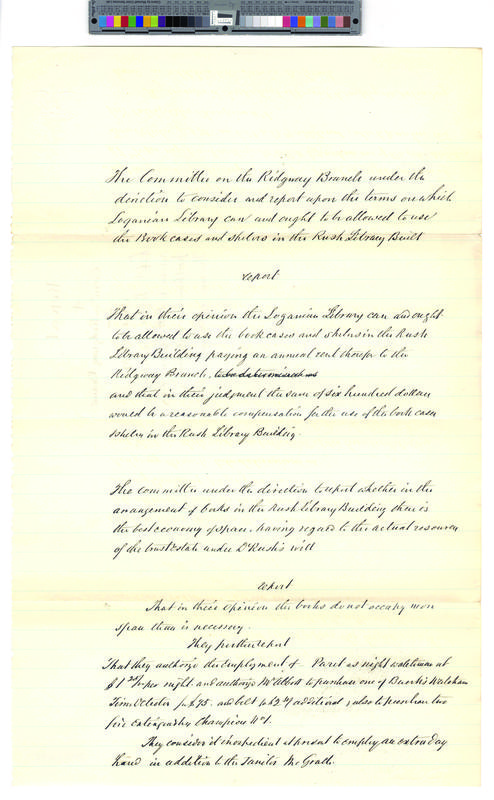 The Committee on the Ridgway Branch under the
direction to consider and report upon the terms on which
Loganian Library can and ought to be allowed to use
the Book cases and shelves in the Rush Library Build
report
That in their opinion the Loganian Library can and ought
to be allowed to use the book cases and shelves in the Rush
Library Building paying an annual rent therefor to the
Ridgway Branch,
and that in their judgment the sum of six hundred dollars
would be a reasonable compensation for the use of the book cases
shelves in the Rush Library Building.
The committee under the direction to report whether in the
arrangement of books in the Rush Library Building there is
the best economy of space, having regard to the actual resources
of the trust Estate under Dr Rush's will
report
That in their opinion the books do not occupy more
space than is necessary.
They further report
That they authorize the employment of Paret as night watchman at
$1 25/100 per night and authorize Mr Abbott to purchase one of Waltham
Time Detector for $75. and belt for $2 additional & also to purchase two
fire extinguishers Champion No 1.
They consider it inexpedient at present to employ an extra day
hand in addition to the Janitor McGrath.